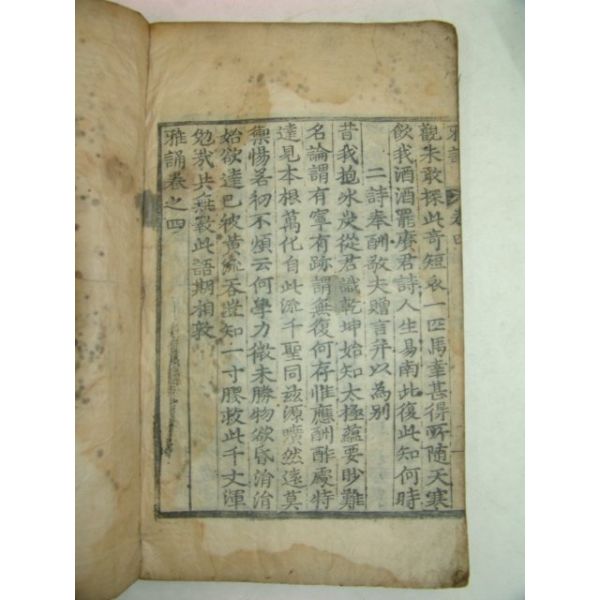 觀朱敢探此奇短衣一匹馬幸甚得所隨天寒
飲我酒酒罷賡君詩人生易南北復此知何時
二詩奉酬敬夫贈言并以為別
昔我抱氷炭從君識乾坤始知太極蘊要眇難
名論謂有寧有跡謂無復何存惟應酬酢處特
達見本根萬化自此流千聖同玆源曠然遠莫
禦惕若初不煩云何學力微未勝物欲昏涓涓
始欲達已被黃流吞豈知一寸膠救此千丈渾
勉哉共無斁此語期相敦
雅誦卷之四